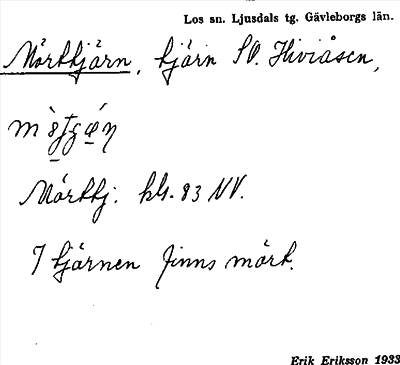 Los sn. Ljusdals tg. Gävleborgs län.
Mörttjärn, tjärn SO. Hiviåsen,
Mörttj. kbl. 83 NV.
I tjärnen finns mört.
Erik Eriksson 1933